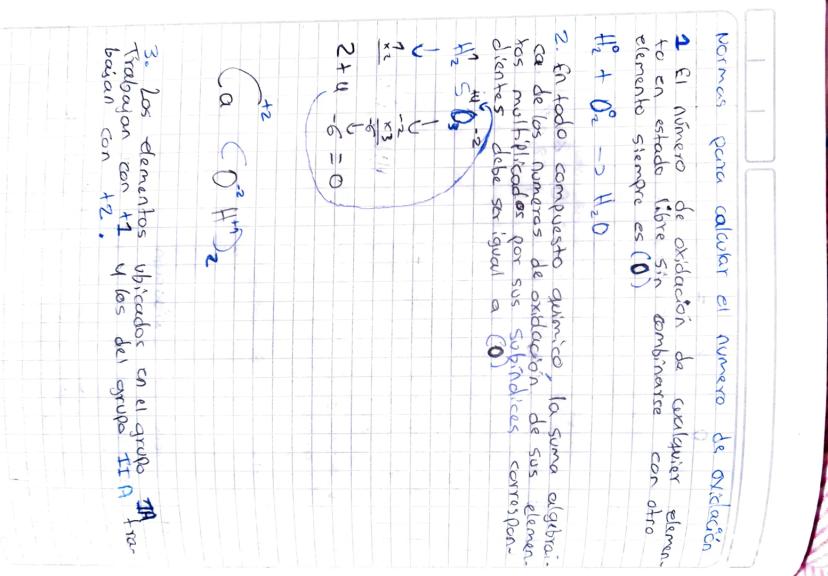 Normas para calcular el numero de oxidación
1 El número de oxidación de cualquier elemen-
to en estado libre sin combinarse con otro
elemento siempre es (0)
H₂⁰ + O₂⁰ → H₂O
2. En todo compuesto químico, la suma algebrai-
ca de los numeros de oxidación de sus elemen-
tos multiplicados por sus subíndices correspon-
dientes debe ser igual a (0)
H₂⁺¹ S⁺⁴ O₃⁻²
↓ ↓
1 -2
x2 x3
-6
2+4 -6=0
Ca⁺² (O⁻² H⁺¹)₂
3. Los elementos ubicados en el grupo IA
Trabajan con +1 y los del grupo IIA tra-
bajan con +2.